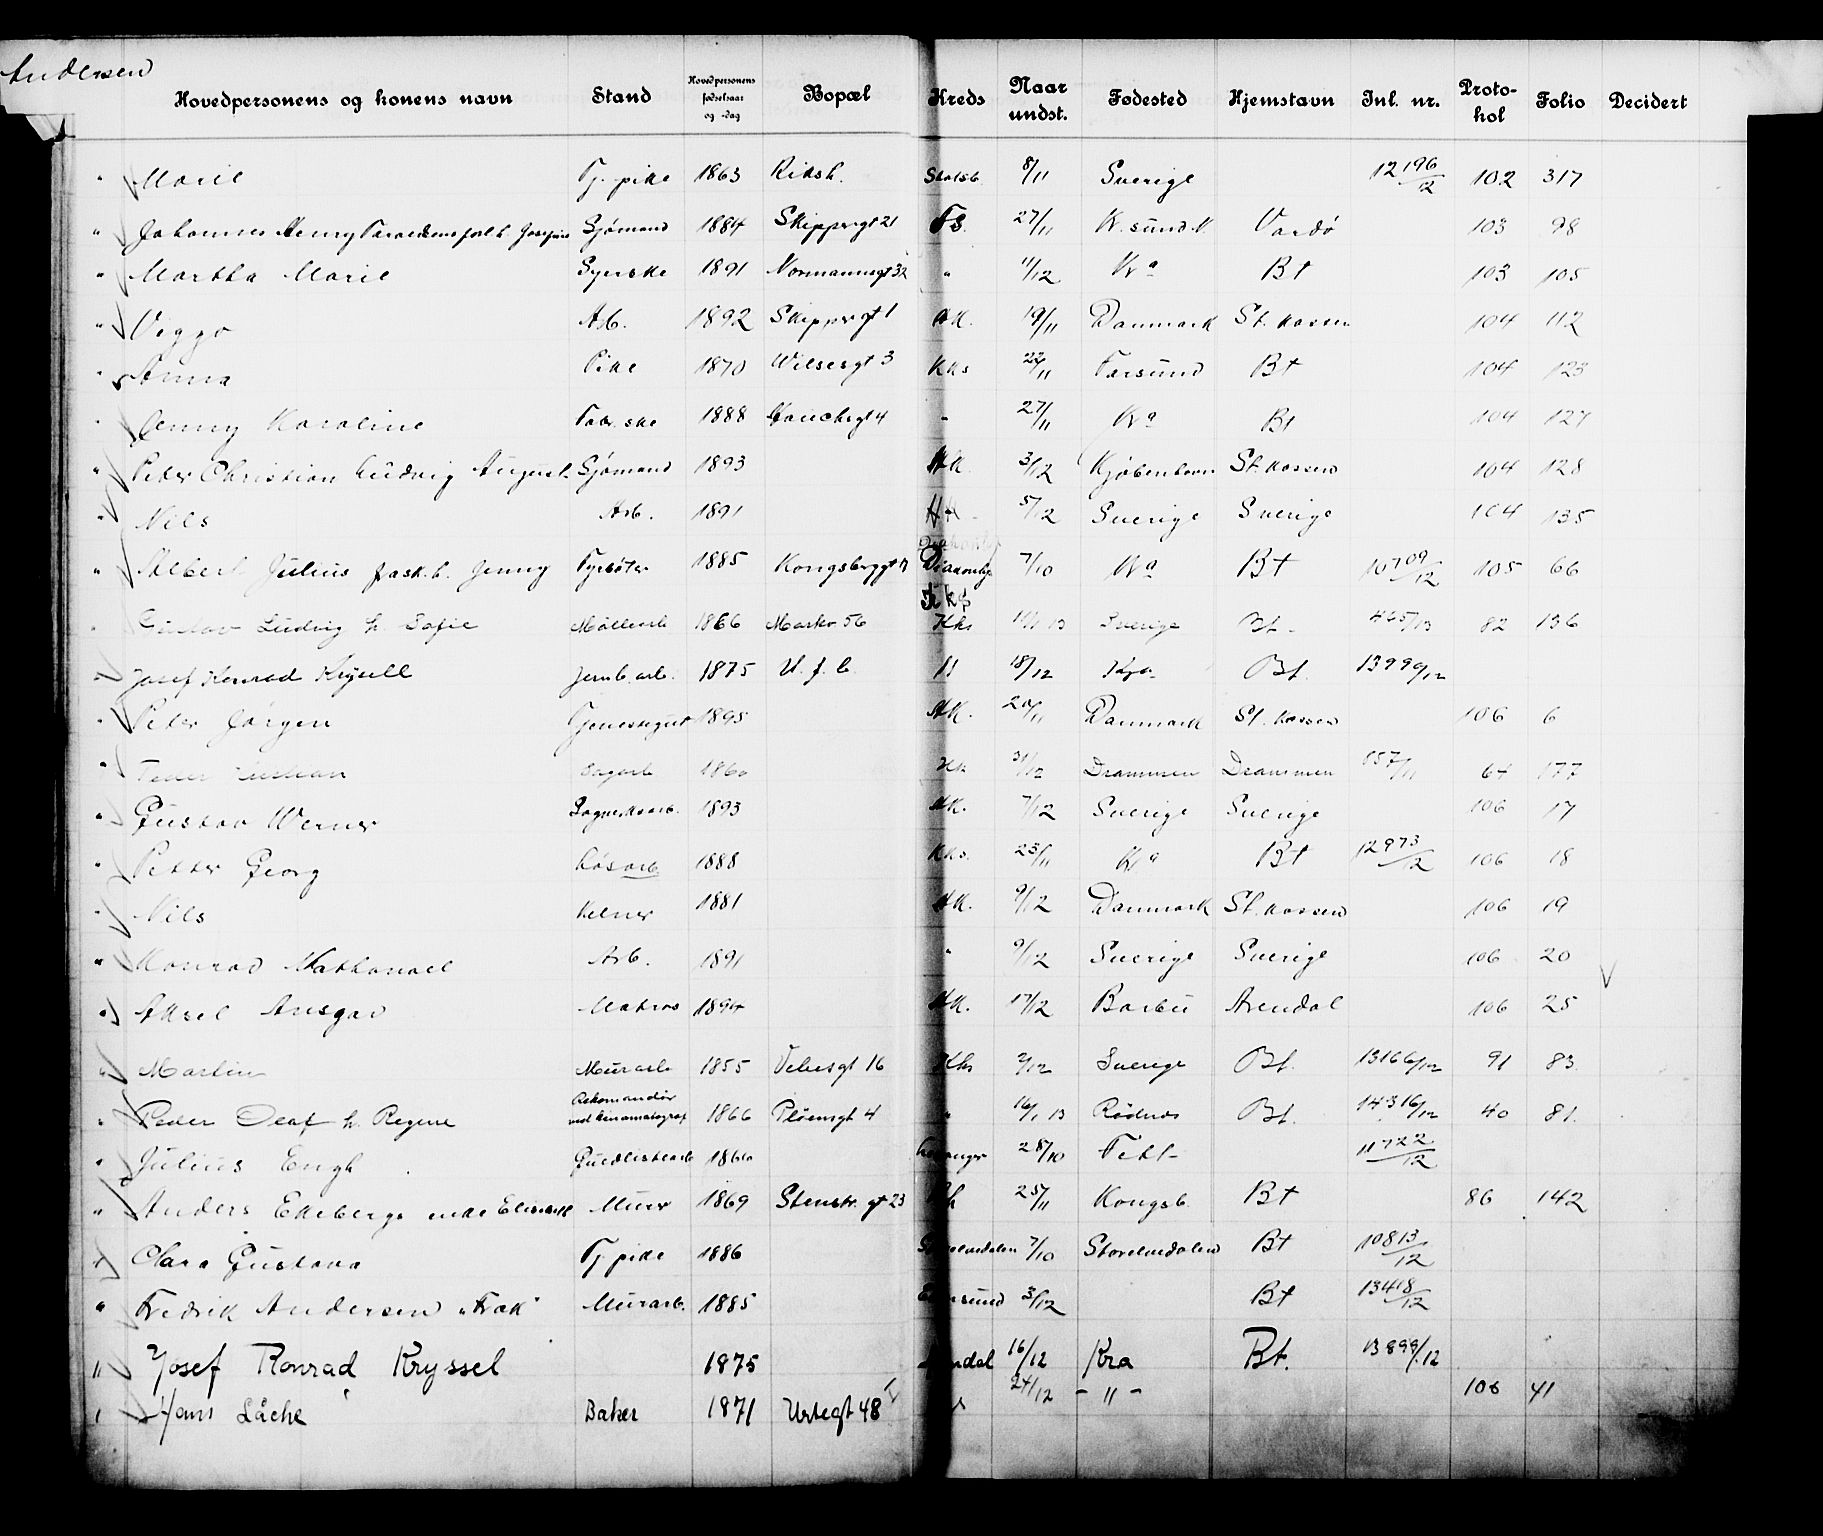 Andersen
Hovedpersonens og konens navn Stand Hovedpersonens fødselsaar og -dag Bopæl Kreds Naar undst. Fødested Hjemstavn Inl. nr. Protokol Folio Decidert
" Marie Tj. pike 1863 Riksh. 8/11 Sverige 12196/12 102 317
" Johannes Henry Sjømand 1884 Skippergt 21 FS. 27/11 Kr. sund. N. Vardø 103 98
" Martha Marie Syerske 1891 Normannsgt 32 " 11/12 Kr a Bt 103 105
" Viggo Arb. 1892 Skippergt 1 AK. 19/11 Danmark St. kassen 104 112
" Anna Pike 1870 Wilsesgt 3 Kks 22/11 Farsund Bt 104 123
" Jenny Karoline Fabr. ske 1888 Hauchsgt 4 " 27/11 Kr a Bt 104 127
" Peter Christian Ludvig August Sjømand 1893 AK. 3/12 Kjøbenhavn St. kassen 104 128
" Nils Arb. 1891 5/12 Sverige Sverige 104 135
" Albert Julius Jenny Fyrbøter 1885 7/10 Kr a Bt 10709/12 105 66
" Gustav Ludvig h. Sofie Møllearb 1866 Markv 56 Kks Sverige Bt. 465/13 82 136
" Josef Konrad Jernb. arb. 1875 U. f. b. 18/12 Kra Bt. 13999/12
" Peter Jørgen 1895 AK. 20/11 Danmark St. kassen 106 6
" Peder Sagarb 1860 31/12 Drammen Drammen 64 177
" Gustav Werner 1893 AK. 7/12 Sverige Sverige 106 17
" Petter Georg Løsarb 1888 Kks. 23/11 Kr a Bt 12973/12 106 18
" Nils Kelner 1881 AK. 9/12 Danmark St. kassen 106 19
" Konrad Nathanael Arb. 1891 " 9/12 Sverige Sverige 106 20
" Aksel Ansgar Matros 1894 AK. 17/12 Barbu Arendal 106 25
" Martin Murarb 1855 Vibesgt 16 Kks 2/12 Sverige Bt. 13166/12 91 83
" Peder Olaf h. Regine Rekomandør ved kinamatograf 1866 Pløensgt 4 " 16/1 13 Rødnes Bt. 14316/12 40 81.
" Julius Engh 28/10 Fet 11722/12
" Anders Ekeberg enke Elisabeth Murer 1869 Stenstr. gt 23 25/11 Kongsb. Bt 86 142
" Clara Gustava Tj. pike 1886 Storelvedalen 7/10 Storelvedalen Bt 10813/12
" Fredrik Andersen "Fræk" Murarb. 1885 3/12 Bt 13418/12
" Josef Konrad Kryssel 1875 Arendal 16/12 Kra Bt. 13899/12
" Hans Låche Baker 1871 Urtegt 48 I 24/12 - " - 106 41